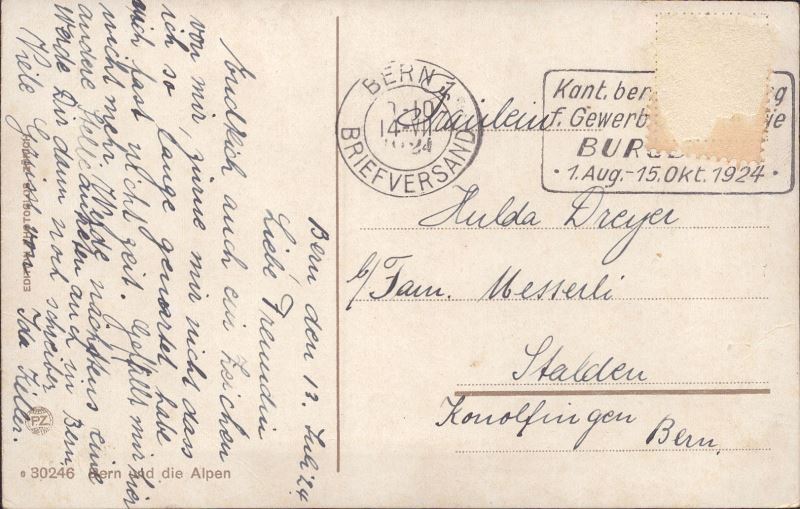 Bern den 13. Juli 24
Liebe Freundin
Endlich auch ein Zeichen
von mir, zürne mir nicht dass
ich so lange gewartet habe
fast nicht Zeit. Gefällt mir hier
nicht mehr. Werde nächstens eine
andere Stelle antreten auch in Bern.
Werde Dir dann noch schreiben
Viele Grüsse von Ida Keller.
PZ
30246 Bern und die Alpen
BERN 1
14. VII
24
BRIEFVERSAND
Kant. ber
f. Gewerb
BURG
1. Aug.-15. Okt. 1924
Fräulein
Hulda Dreyer
b/ Fam. Messerli
Stalden
Konolfingen
Bern.